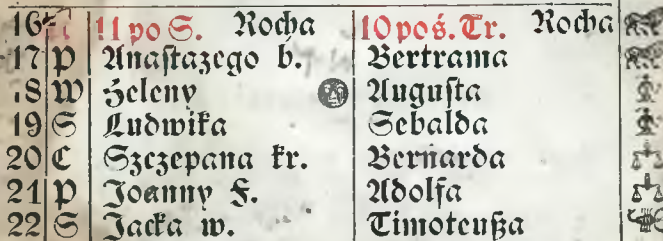 16 11 po S. Rocha 10 poś. Tr. Rocha
17 P Anaſtazego b. Bertrama
18 W Heleny Auguſta
19 S Ludwika Sebalda
20 C Szczepana kr. Bernarda
21 P Joanny F. Adolfa
22 S Jacka w. Timoteuſza